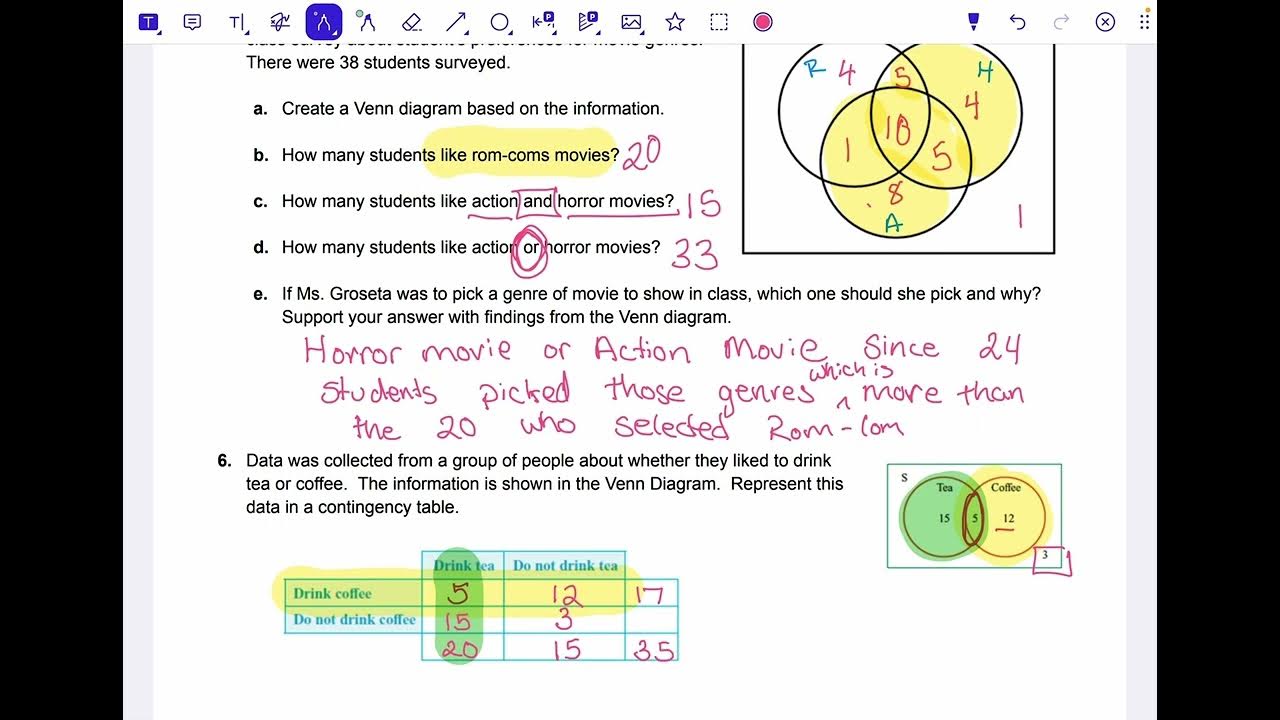 There were 38 students surveyed.
R 4 5 H
4
a. Create a Venn diagram based on the information.
10
b. How many students like rom-coms movies? 20
1 5
c. How many students like action and horror movies? 15
8
A 1
d. How many students like action or horror movies? 33
e. If Ms. Groseta was to pick a genre of movie to show in class, which one should she pick and why?
Support your answer with findings from the Venn diagram.
Horror movie or Action Movie Since 24
students picked those genres which is more than
the 20 who selected Rom-Com
6. Data was collected from a group of people about whether they liked to drink
tea or coffee. The information is shown in the Venn Diagram. Represent this
data in a contingency table.
S
Tea Coffee
15 5 12
3
Drink tea Do not drink tea
Drink coffee 5 12 17
Do not drink coffee 15 3
20 15 35